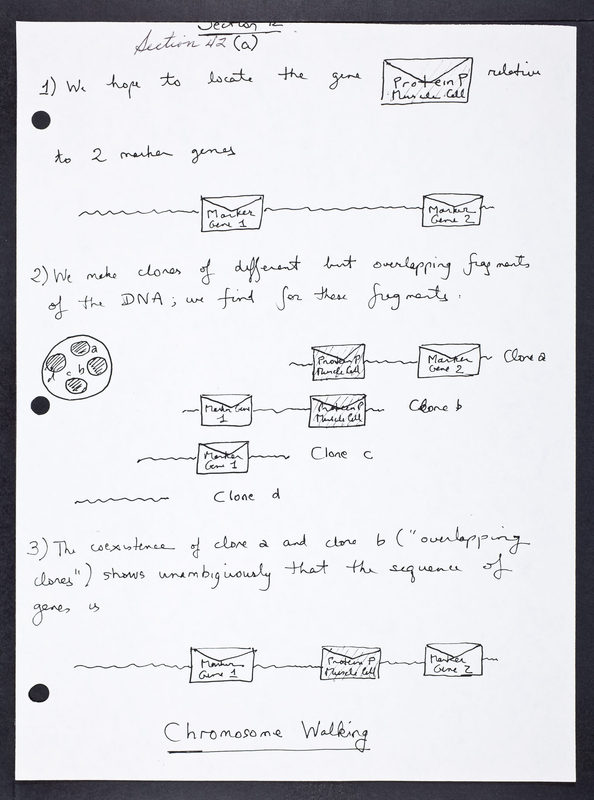 Section 42 (a)
1) We hope to locate the gene Protein P Muscle Cell relative
to 2 marker genes
Marker Gene 1
Marker Gene 2
2) We make clones of different but overlapping fragments
of the DNA; we find for these fragments.
a
d c b
Protein P Muscle Cell
Marker Gene 2
Clone a
Marker Gene 1
Protein P Muscle Cell
Clone b
Marker Gene 1
Clone c
Clone d
3) The coexistence of clone a and clone b ("overlapping
clones") shows unambiguously that the sequence of
genes is
Marker Gene 1
Protein P Muscle Cell
Marker Gene 2
Chromosome Walking